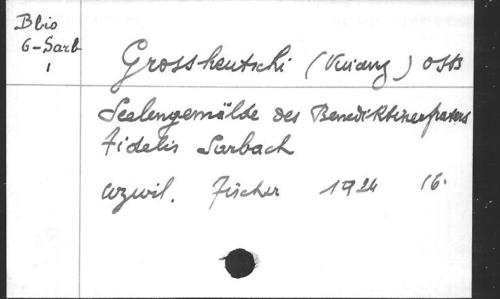 Bbio
G-Sarb
1
Grossheutschi (Vinanz) OSB
Seelengemälde des Benediktinerfraters
Fidelis Sarbach
Uzwil. Fischer 1924 16.